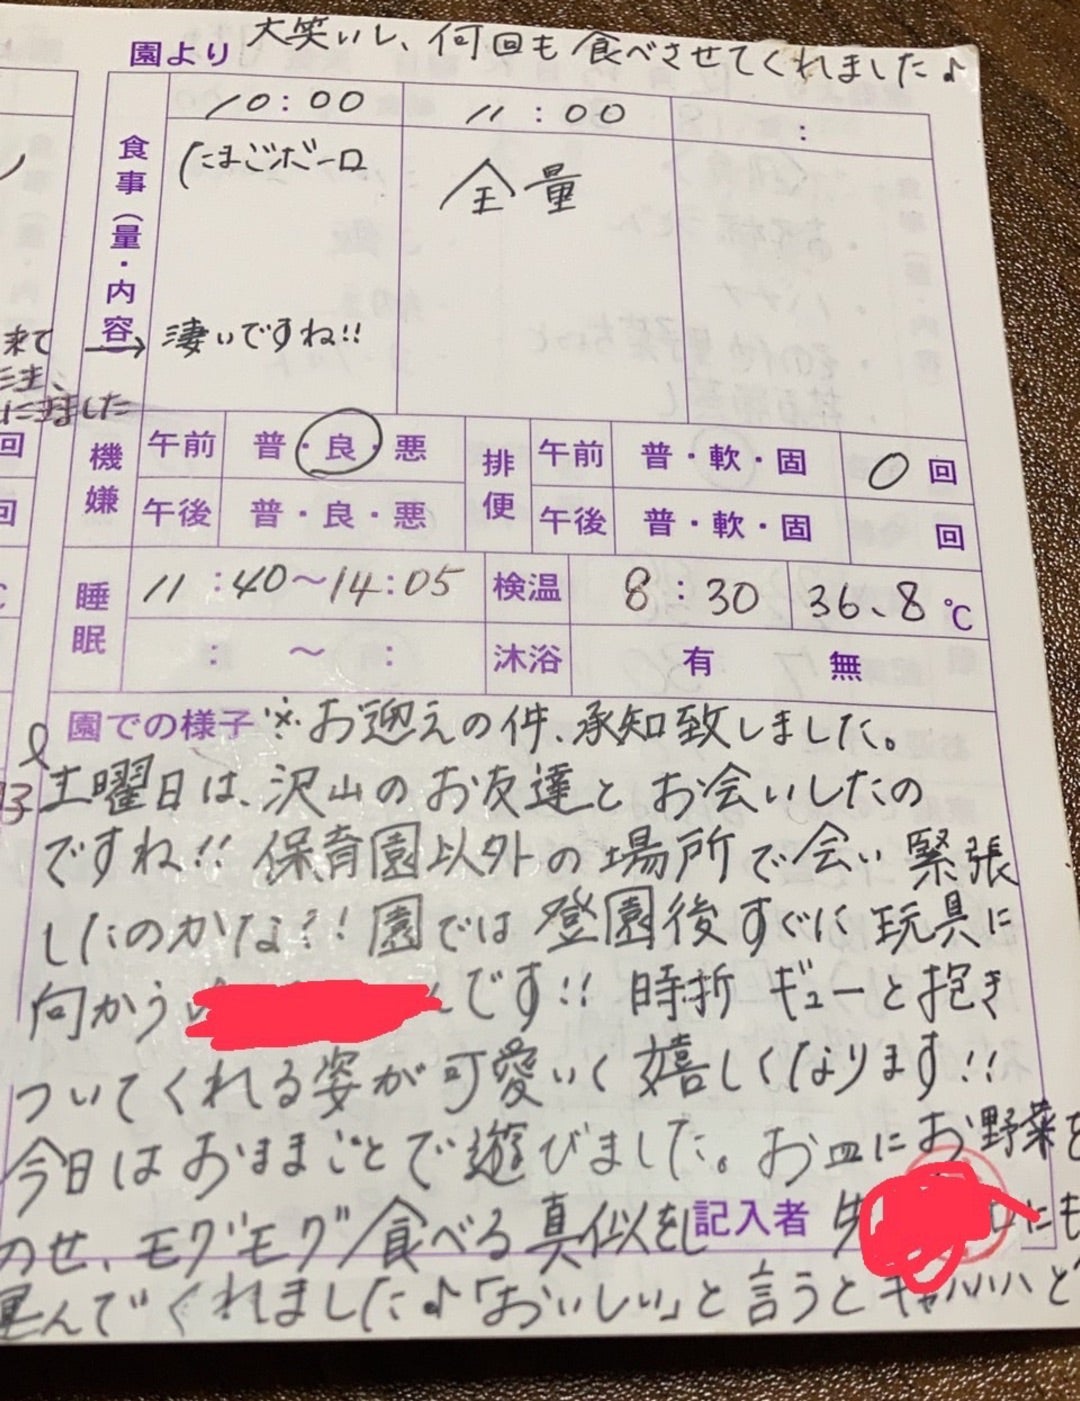 園より 大笑いし、何回も食べさせてくれました♪
10:00 11:00 :
食事(量・内容)
たまごボーロ 全量
来て → 凄いですね!!
にました
機嫌 午前 普・良・悪 排便 午前 普・軟・固 0回
午後 普・良・悪 午後 普・軟・固 回
睡眠 11:40〜14:05 検温 8:30 36.8℃
: 〜 : 沐浴 有 無
園での様子 ※お迎えの件、承知致しました。
土曜日は、沢山のお友達とお会いしたの
ですね!! 保育園以外の場所で会い緊張
したのかな?! 園では登園後すぐに玩具に
向かう んです!! 時折ギューと抱き
ついてくれる姿が可愛いく嬉しくなります!!
今日はおままごとで遊びました。お皿にお野菜を
のせ、モグモグ食べる真似をし 記入者 先 にも
運んでくれました♪「おいしい」と言うとキャハハハと